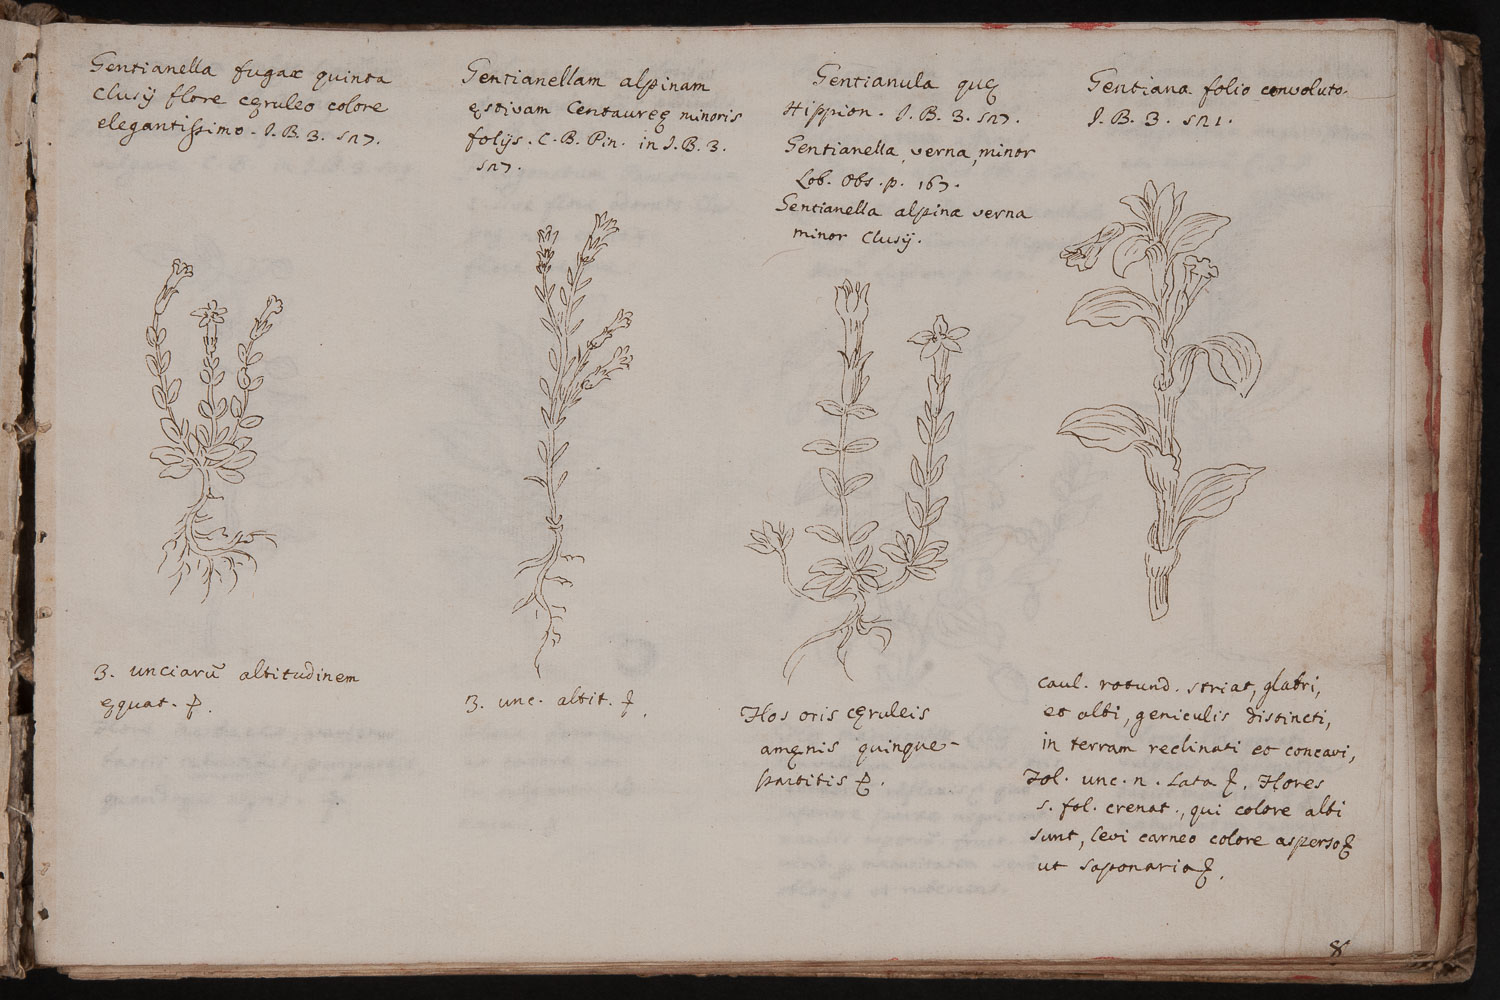 Gentianella fugax quinta
Clusij flore cęruleo colore
elegantissimo. I. B. 3. 527.
3. unciarū altitudinem
ęquat.
Gentianellam alpinam
ęstivam Centaureę minoris
folijs. C. B. Pin. in I. B. 3.
527.
3. unc. altit.
Gentianula quę
Hippion. I. B. 3. 527.
Gentianella, verna, minor
Lob. Obs. p. 167.
Gentianella alpina verna
minor Clusij.
Flos oris cęruleis
amęnis quinque-
partitis
Gentiana folio convoluto
I. B. 3. 521.
caul. rotund. striat, glabri,
et albi, geniculis distincti,
in terram reclinati et concavi,
Fol. unc. n. Lata. Flores
s. fol. crenat., qui colore albi
sunt, levi carneo colore asperso
ut saponaria.
8